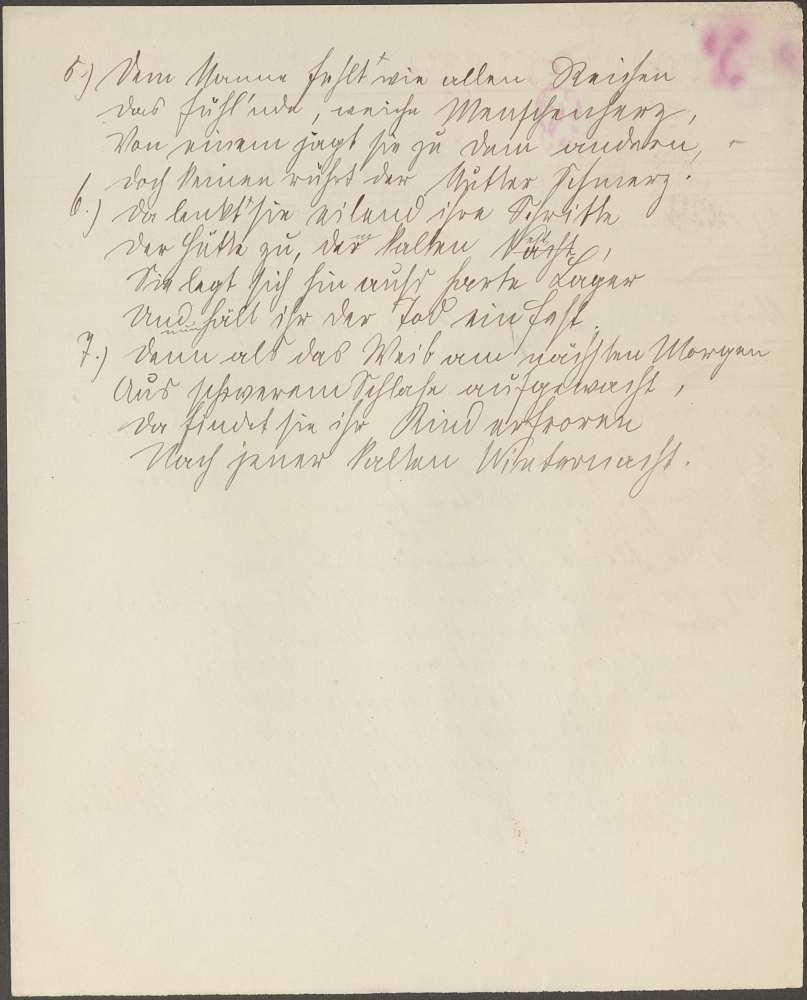 5.) Dem Manne fehlt' wie allen Reichen
Das fühl'nde, weiche Menschenherz,
Von einem jagt sie zu dem andern, -
Doch keinen rührt' der Mutter Schmerz.
6.) Da lenkt' sie eilend ihre Schritte
Der Hütte zu, der kalten
Sie legt sich hin aufs harte Lager
Und hält ihr der Tod ein Fest.
7.) Denn als das Weib am nächsten Morgen
Aus schwerem Schlafe aufgewacht,
Da findet sie ihr Kind erfroren
Nach jener kalten Winternacht.